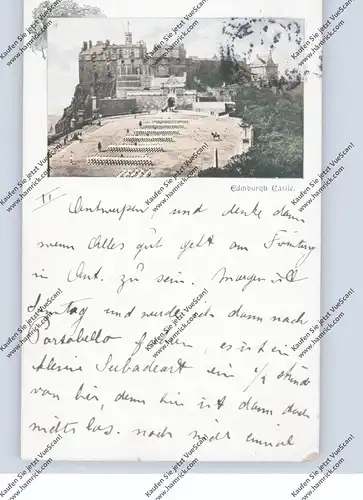 Edinburgh Castle.
II
Antwerpen und denke dann
wenn Alles gut geht am Freitag
in Ant. zu sein. Morgen ist
Sontag und werde ich dann nach
Portobello fahren, es ist ein
kleine Seebadeort ein 1/2 stunde
von hier, denn hier ist dann doch
nichts los. noch nicht einmal
Kaufen Sie jetzt VueScan!
www.hamrick.com